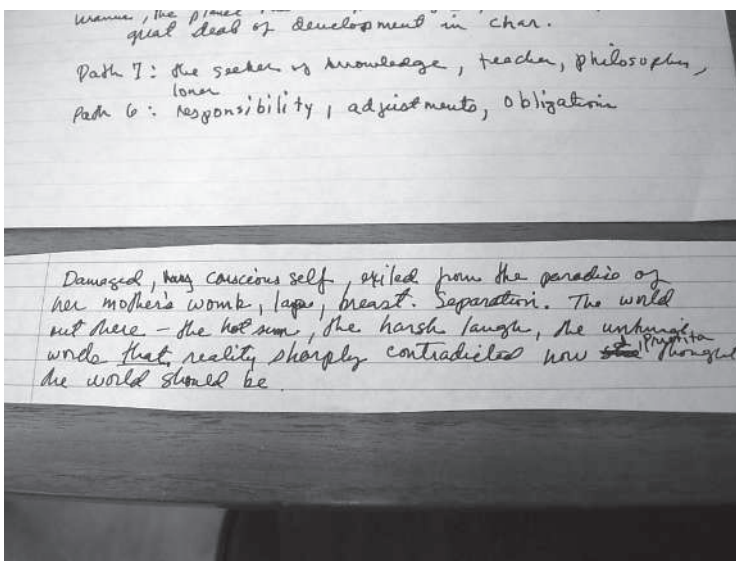 Uranus, the planet
great deal of development in char.
Path 7: the seeker of knowledge, teacher, philosopher,
loner
Path 6: responsibility, adjustments, obligations
Damaged, conscious self, exiled from the paradise of
her mother's womb, lap, breast. Separation. The world
out there – the hot sun, the harsh laugh, the unkind
words that reality sharply contradicted how thought
the world should be.